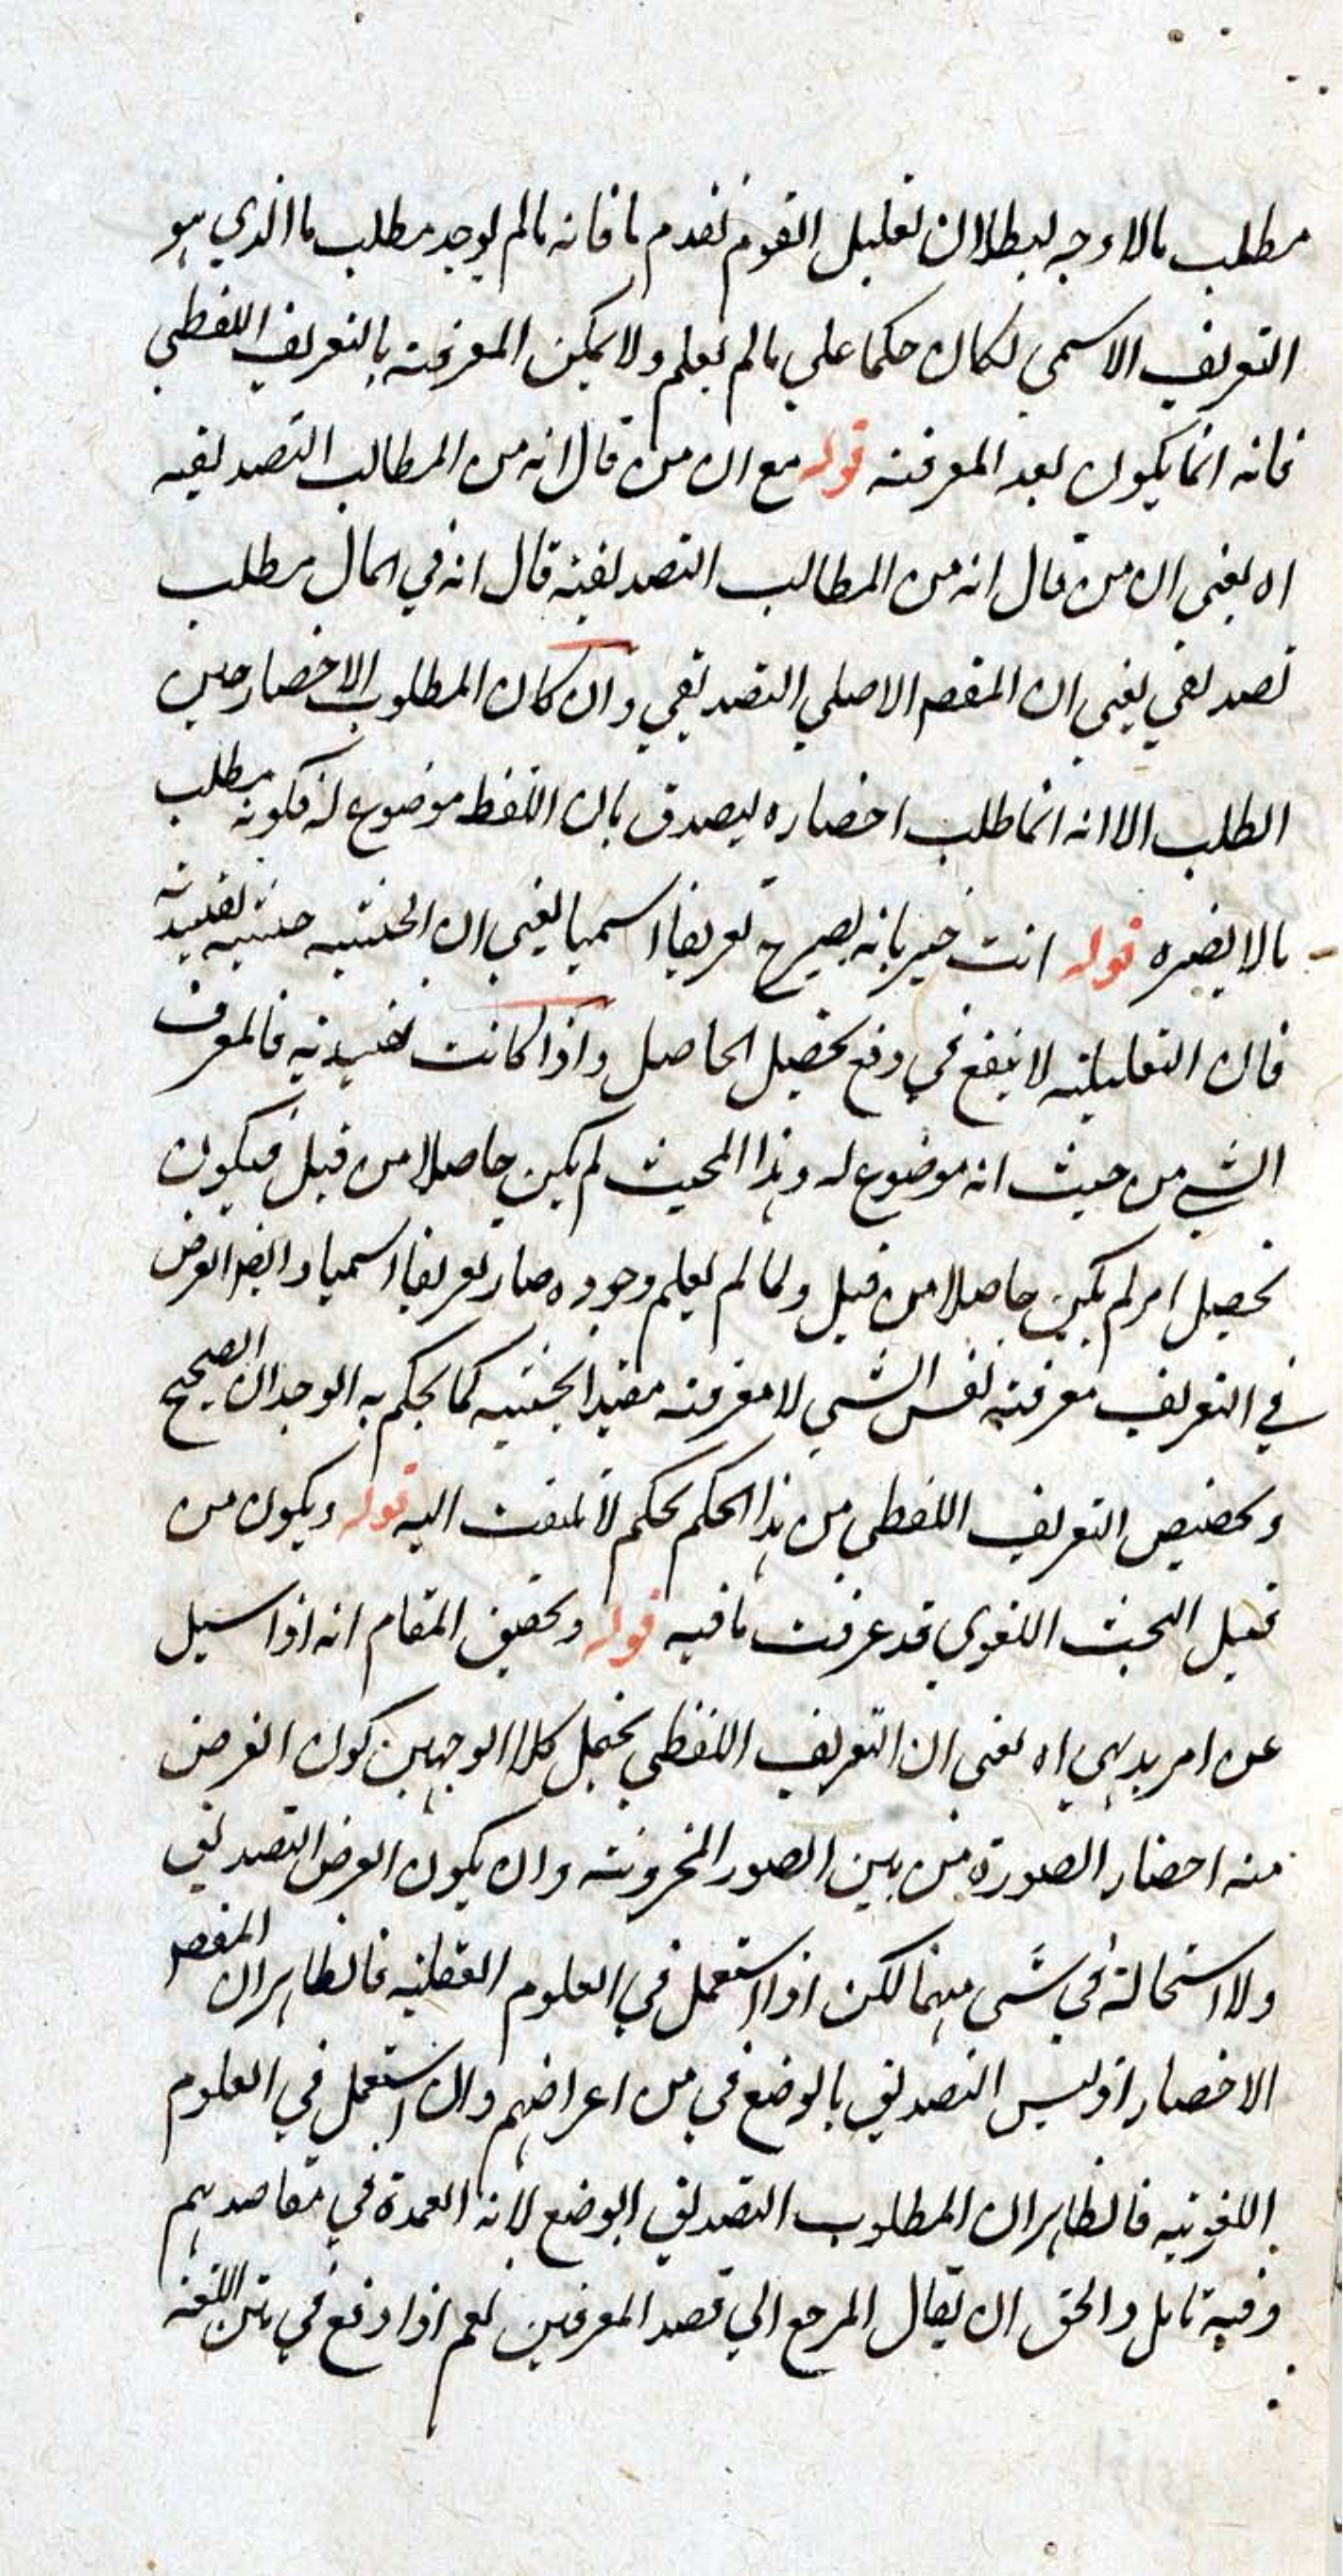 مطلب ما لا وجه لبطلان تعليل القوم تقدم ما فانه ما لم يوجد مطلب ما الذي هو
التعريف الاسمي لكان حكما علي ما لم يعلم ولا يمكن المعرفة بالتعريف اللفظي
فانه انما يكون بعد المعرفة قوله مع ان من قال انه من المطالب التصديقيه
اه يعني ان من قال انه من المطالب التصديقية قال انه في المال مطلب
تصديقي يعني ان المقصم الاصلي التصديقي وان كان المطلوب الاحضار حين
الطلب الا انه انما طلب احضاره ليصدق بان اللفظ موضوع له فكونه مطلب
ما لا يضره قوله انت خبير بانه يصير ح تعريفا اسميا يعني ان الحيثيه حيثيه تقييديه
فان التعليلية لا ينفع في دفع تحصيل الحاصل واذا كانت تقييديه فالمعرف
الشي من حيث انه موضوع له وهذا المحيث لم يكن حاصلا من قبل فيكون
تحصيل امر لم يكن حاصلا من قبل ولما لم يعلم وجوده صار تعريفا اسميا وايضا الغرض
في التعريف معرفة نفس الشي لا معرفته مقيد الحيثيه كما يحكم به الوجدان الصحيح
وتخصيص التعريف اللفظي من هذا الحكم تحكم لا يلتفت اليه قوله ويكون من
قبيل البحث اللغوي قد عرفت ما فيه قوله وتحقيق المقام انه اذا سيل
عن امر بديهي اه يعني ان التعريف اللفظي يحتمل كلا الوجهين كون الغرض
منه احضار الصورة من بين الصور المخزونة وان يكون الغرض التصديق
ولا استحالة في شي منهما لكن اذا استعمل في العلوم العقلية فالظاهر ان المقصم
الاحضار اذ ليس التصديق بالوضع في من اغراضهم وان استعمل في العلوم
اللغوية فالظاهر ان المطلوب التصديق الوضع لانه العمدة في مقاصدهم
وفيه تامل والحق ان يقال المرجع الي قصد المعرفين نعم اذا وقع في متن اللغة